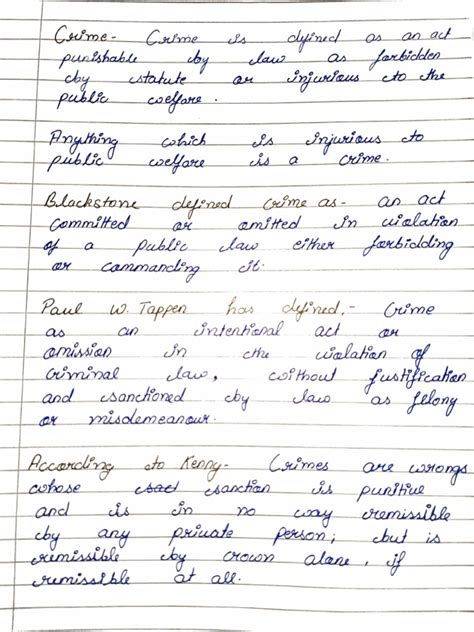 Crime- Crime is defined as an act
punishable by law as forbidden
by statute or injurious to the
public welfare.
Anything which is injurious to
public welfare is a crime.
Blackstone defined Crime as- an act
committed or omitted in violation
of a public law either forbidding
or commanding it.
Paul W. Tappen has defined,- Crime
as an intentional act or
omission in the violation of
criminal law, without justification
and sanctioned by law as felony
or misdemeanour.
According to Kenny- Crimes are wrongs
whose sanction is punitive
and is in no way remissible
by any private person; but is
remissible by crown alone, if
remissible at all.